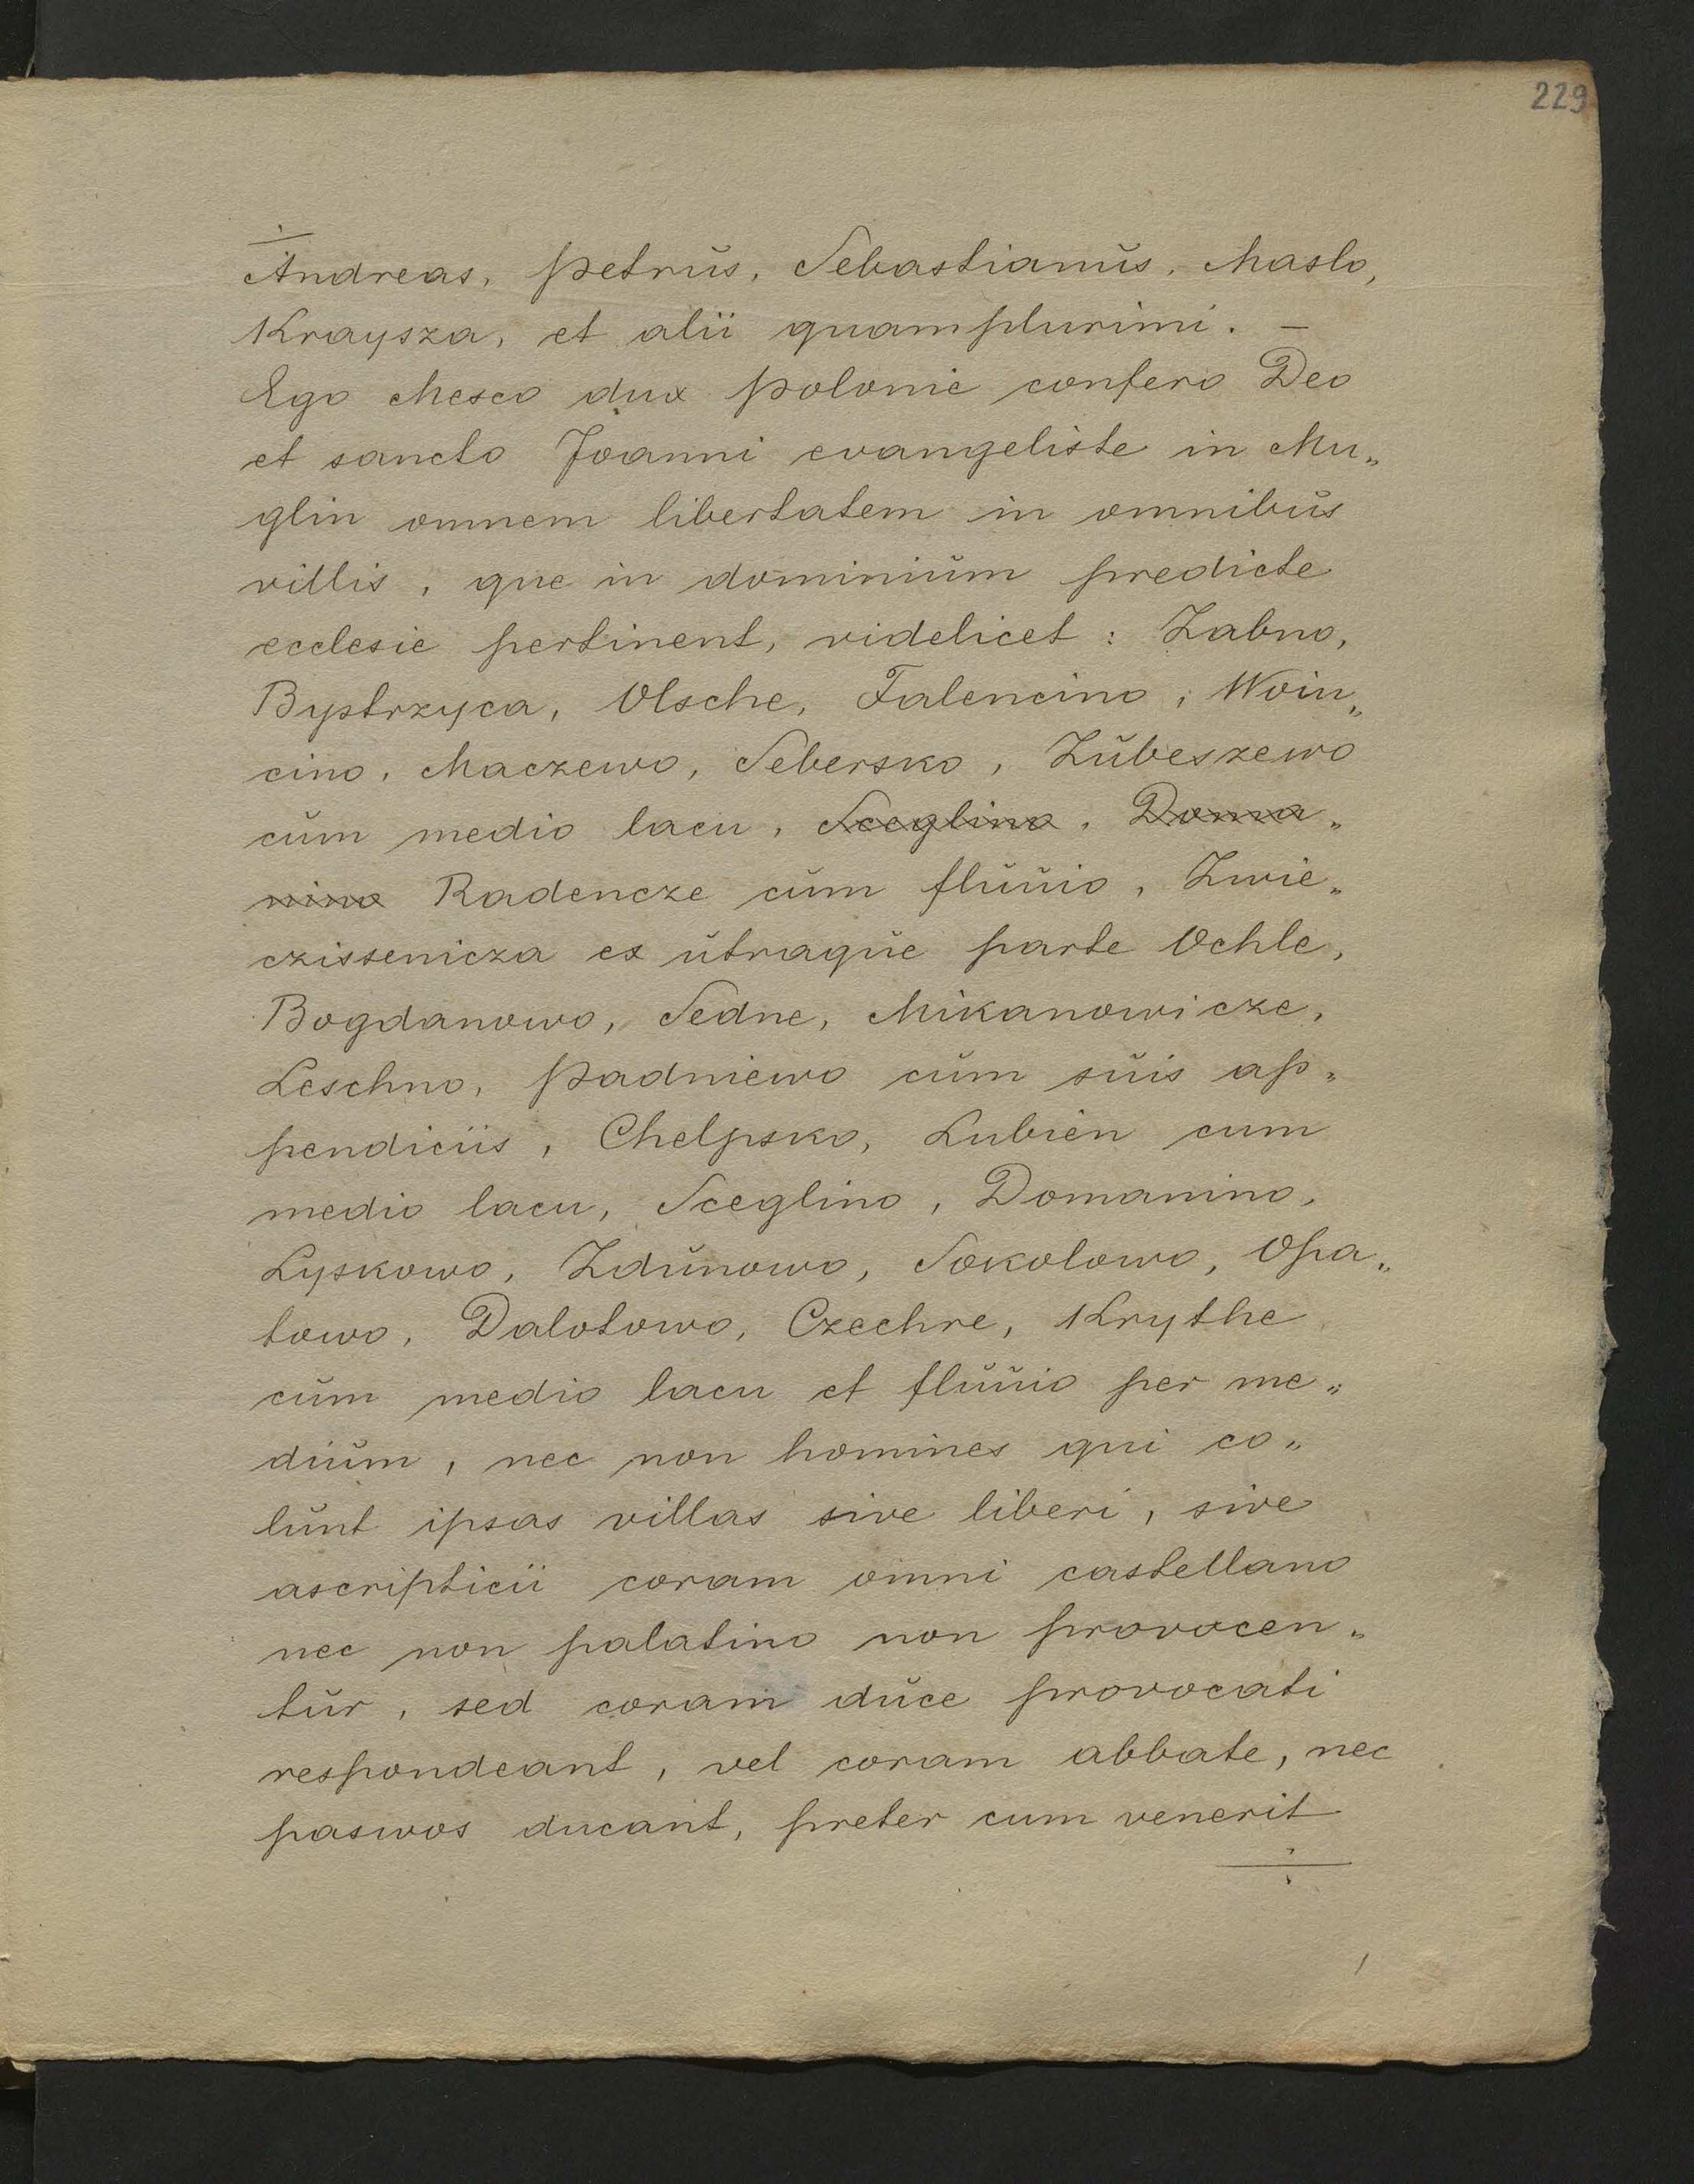 229
Andreas, Petrus, Sebastianus, Maslo,
Kraysza, et alii quamplurimi. –
Ego Mesco dux Polonie confero Deo
et sancto Joanni evangeliste in Mu„
glin omnem libertatem in omnibus
villis, que in dominium predicte
ecclesie pertinent, videlicet: Zabno,
Bystrzyca, Olsche, Falencino, Woin„
cino, Maczewo, Sebersko, Zubeszewo
cum medio lacu, Sceglino, Doma„
nino Radencze cum fluuio, Zwie„
czissenicza ex utraque parte Ochle,
Bogdanowo, Sedne, Mikanowicze,
Leschno, Padniewo cum suis ap„
pendiciis, Chelpsko, Lubien cum
medio lacu, Sceglino, Domanino,
Lyskowo, Zdunowo, Sokolowo, Opa„
towo, Dalotowo, Czechre, Krythe
cum medio lacu et fluuio per me„
dium, nec non homines qui co„
lunt ipsas villas sive liberi, sive
ascripticii coram omni castellano
nec non palatino non provocen„
tur, sed coram duce provocati
respondeant, vel coram abbate, nec
paswos ducant, preter cum venerit